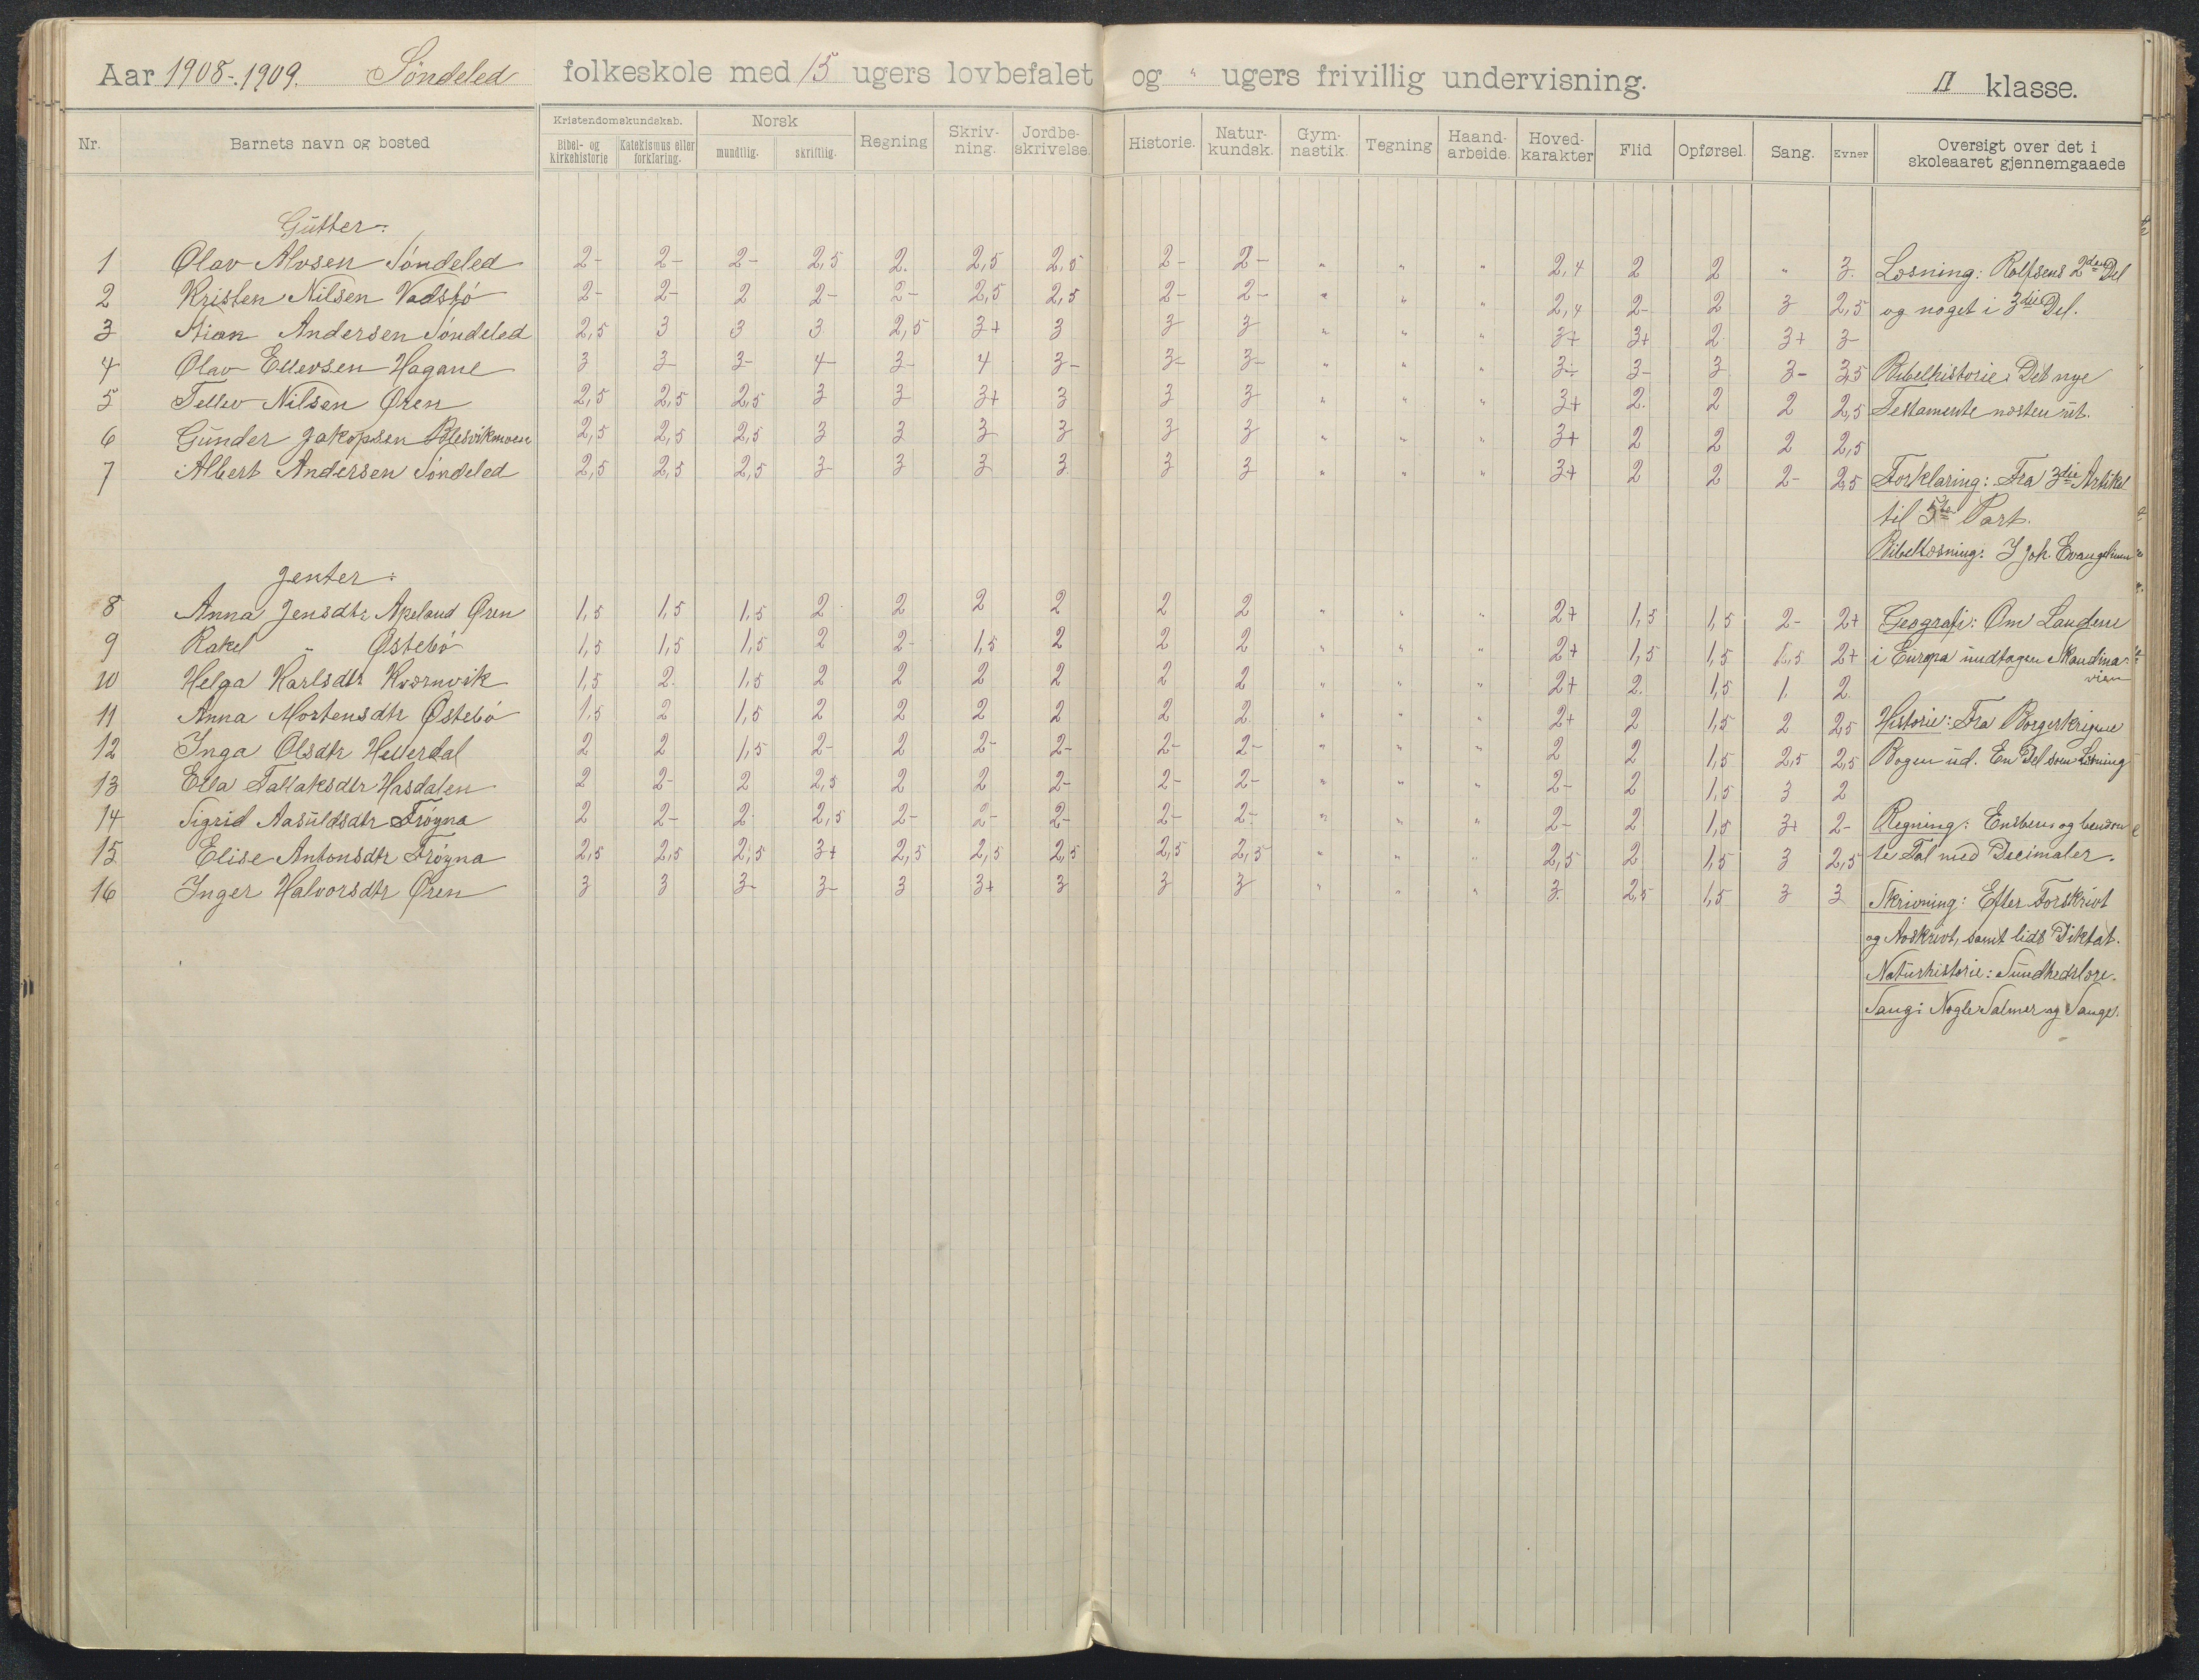 Aar 1908-1909. Søndeled folkeskole med 15 ugers lovbefalet og " ugers frivillig undervisning. II klasse.
Nr. Barnets navn og bosted Kristendomskundskab. Bibel- og kirkehistorie Katekismus eller forklaring. Norsk mundtlig. skriftlig. Regning Skriv-ning. Jordbe-skrivelse. Historie. Natur-kundsk. Gym-nastik. Tegning Haand-arbeide. Hoved-karakter Flid Opførsel. Sang. Evner Oversigt over det i skoleaaret gjennemgaaede
Gutter:
1 Olav Alvsen Søndeled 2- 2- 2- 2,5 2. 2,5 2,5 2- 2- " " " 2,4 2 2 " 3. Læsning: Rolfsens 2den Del
2 Kristen Nilsen Vadsbø 2- 2- 2 2- 2- 2,5 2,5 2- 2- " " " 2,4 2- 2 3 2,5 og noget i 3die Del.
3 Andersen Søndeled 2,5 3 3 3 2,5 3+ 3 3 3 " " " 3+ 3+ 2. 3+ 3-
4 Olav Ellevsen Hagane 3 3- 3- 4- 3- 4 3- 3- 3- " " " 3- 3- 3 3- 3,5 Bibelhistorie: Det nye
5 Tellev Nilsen Øren 2,5 2,5 2,5 3 3 3+ 3 3 3 " " " 3+ 2. 2 2 2,5 Testamente næsten ut.
6 Gunder Jakopsen Blesvikmoen 2,5 2,5 2,5 3 3 3 3 3 3 " " " 3+ 2 2 2 2,5
7 Albert Andersen Søndeled 2,5 2,5 2,5 3- 3 3 3 3 3 " " " 3+ 2 2 2- 2,5 Forklaring: Fra 3die Artikel
til 5te Part.
Bibellæsning: I Joh. Evangelium
Jenter:
8 Anna Jensdtr Apeland Øren 1,5 1,5 1,5 2 2 2 2 2 2 " " " 2+ 1,5 1,5 2- 2+ Geografi: Om Landene
9 Rakel " Østebø 1,5 1,5 1,5 2 2- 1,5 2 2 2 " " " 2+ 1,5 1,5 1,5 2+ i Europa undtagen Skandina-
vien
10 Helga Karlsdtr Kværnvik 1,5 2. 1,5 2 2 2 2 2 2 " " " 2+ 2. 1,5 1. 2.
11 Anna Mortensdtr Østebø 1,5 2 1,5 2 2 2 2 2 2 " " " 2+ 2 1,5 2 2,5 Historie: Fra Borgerkrigene
12 Inga Olsdtr Hellerdal 2 2 1,5 2- 2 2- 2- 2- 2- " " " 2 2 1,5 2,5 2,5 Bogen ud. En Del som Læsning
13 Ella Tallaksdtr Hasdalen 2 2- 2 2,5 2 2 2- 2- 2- " " " 2- 2 1,5 3 2
14 Sigrid Aasuldsdtr Frøyna 2 2- 2- 2,5 2- 2- 2- 2- 2- " " " 2- 2 1,5 3+ 2- Regning: Ensbenævnte
15 Elise Antonsdtr Frøyna 2,5 2,5 2,5 3+ 2,5 2,5 2,5 2,5 2,5 " " " 2,5 2 1,5 3 2,5 te Tal med Decimaler.
16 Inger Halvorsdtr Øren 3 3 3- 3- 3 3+ 3 3 3 " " " 3. 2,5 1,5 3 3 Skrivning: Efter Forskrivt
og Avskrivt, samt lidt Diktat.
Naturhistorie: Sundhedslære.
Sang: Nogle Salmer og Sange.